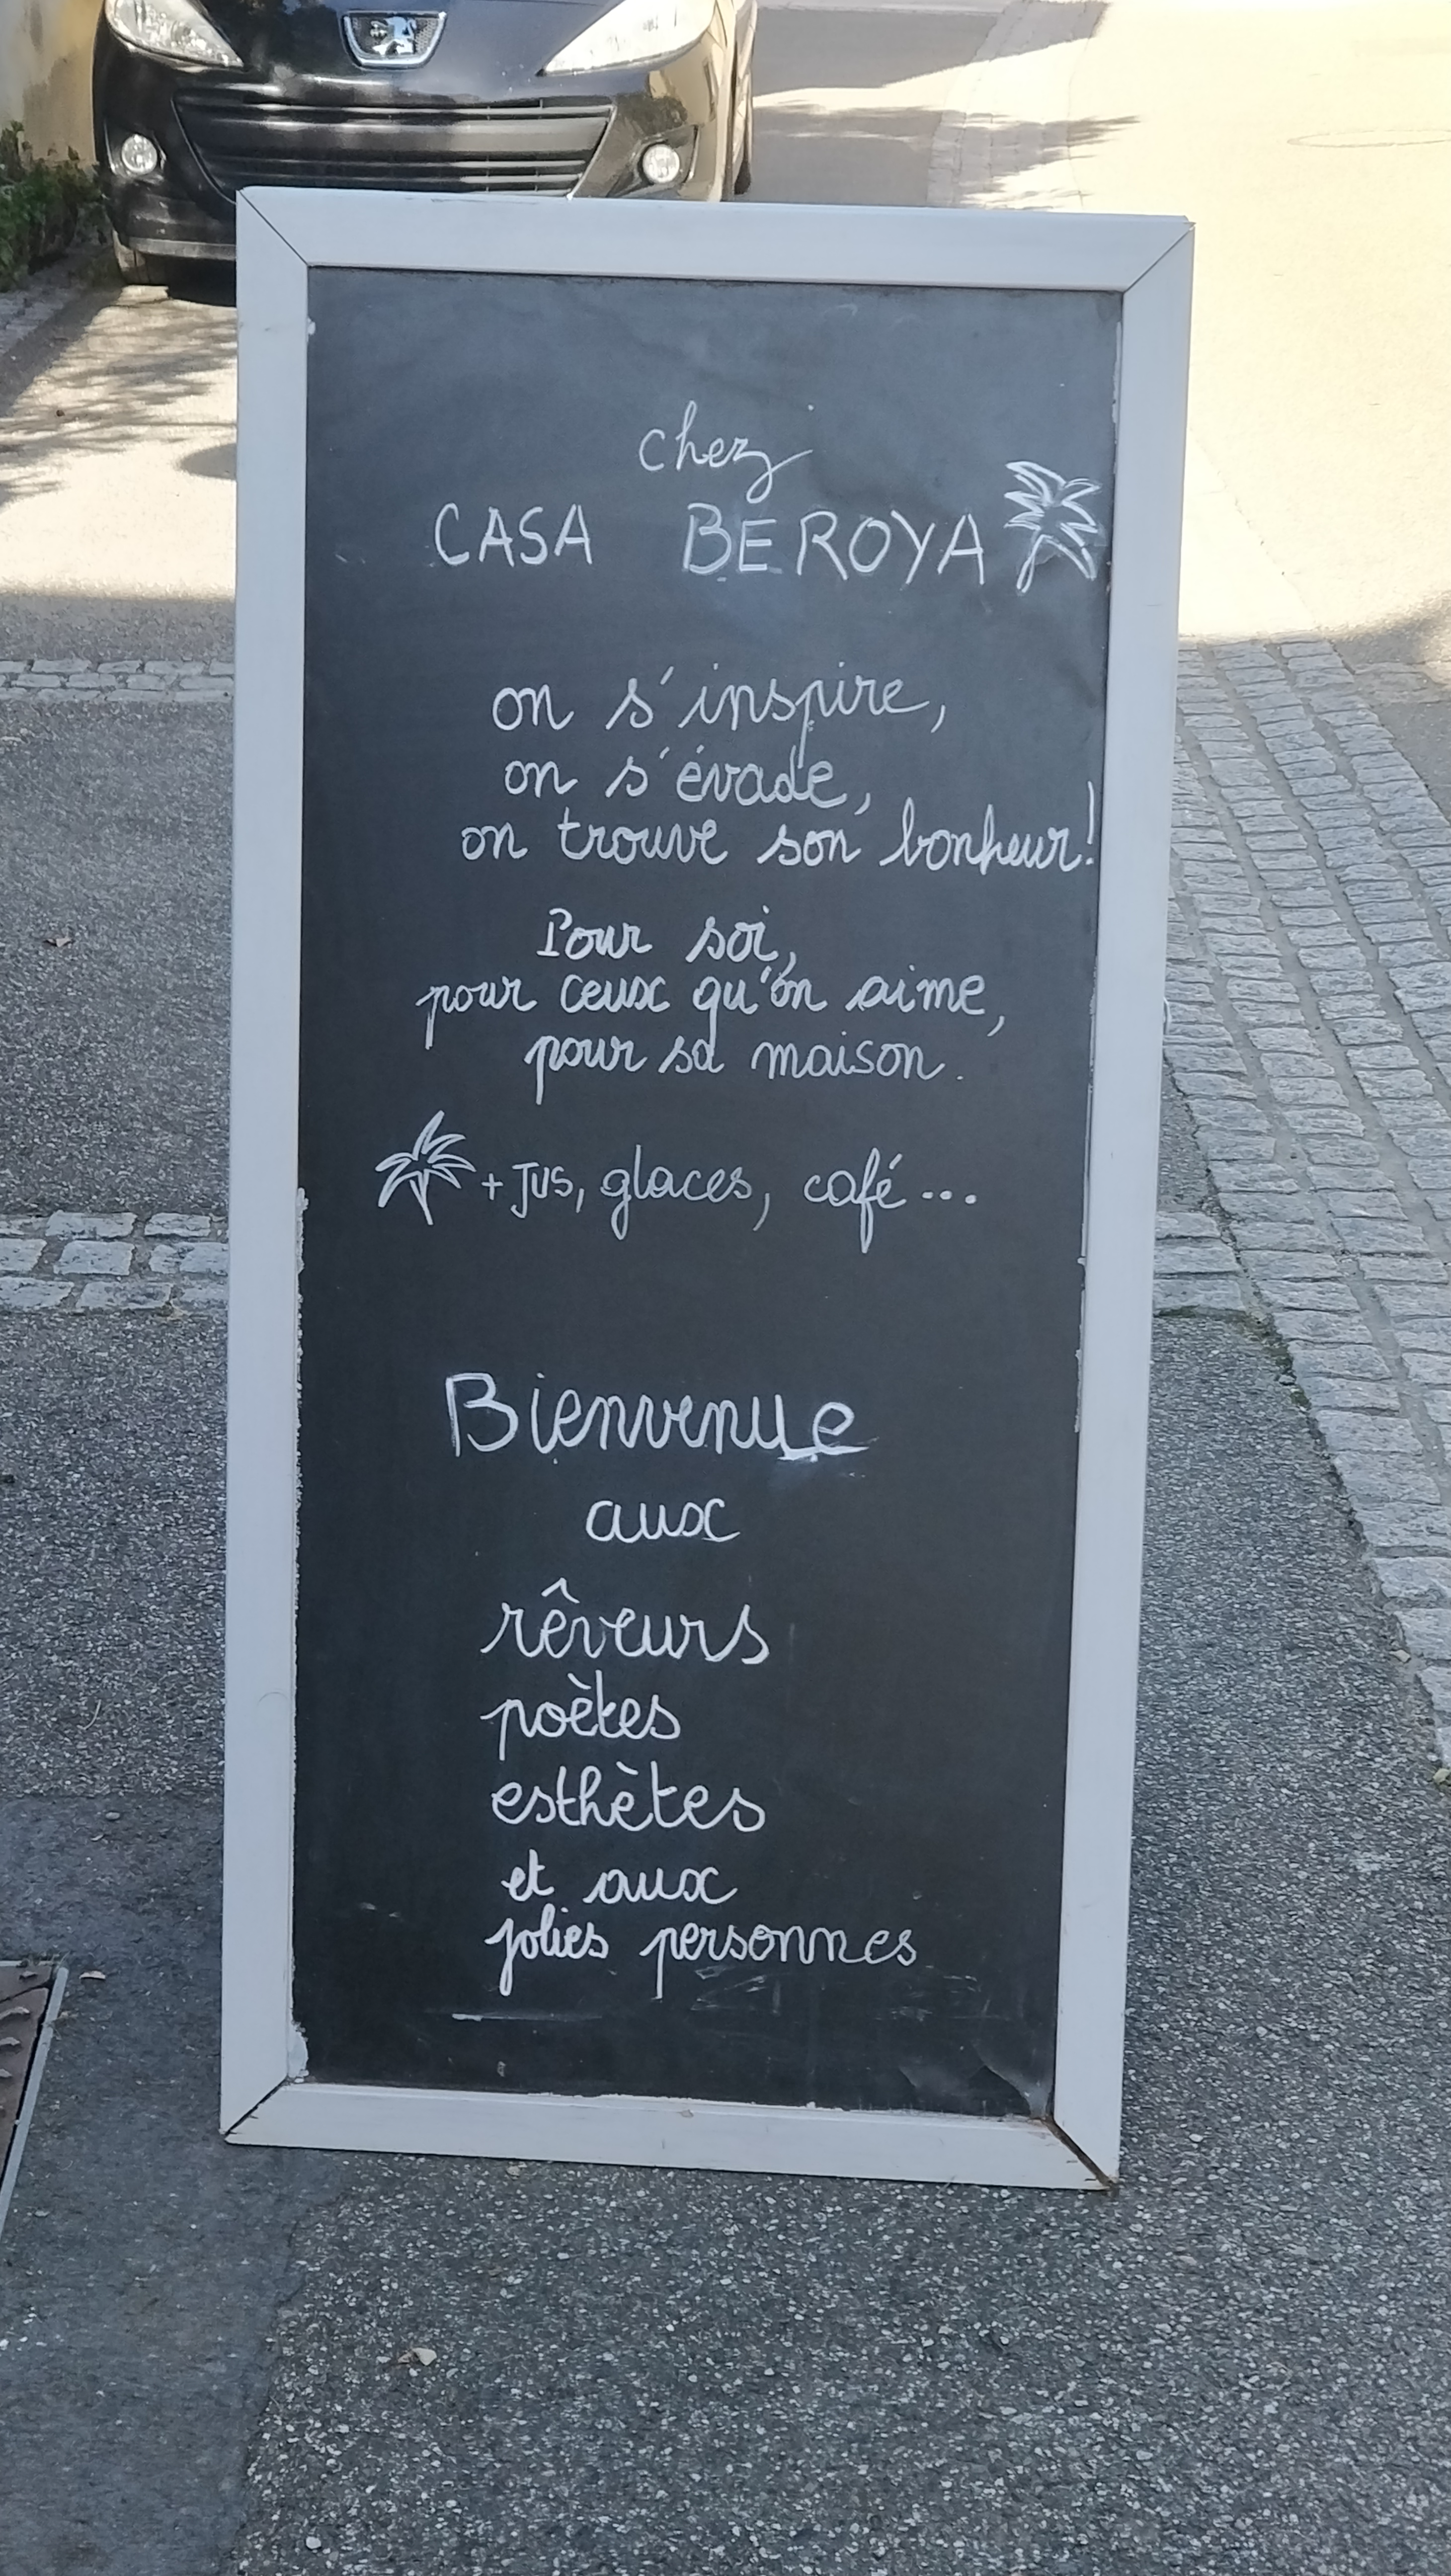 chez
CASA BEROYA
on s'inspire,
on s'évade,
on trouve son bonheur!
Pour soi,
pour ceux qu'on aime,
pour sa maison.
+ JUS, glaces, café...
Bienvenue
aux
rêveurs
poètes
esthètes
et aux
jolies personnes